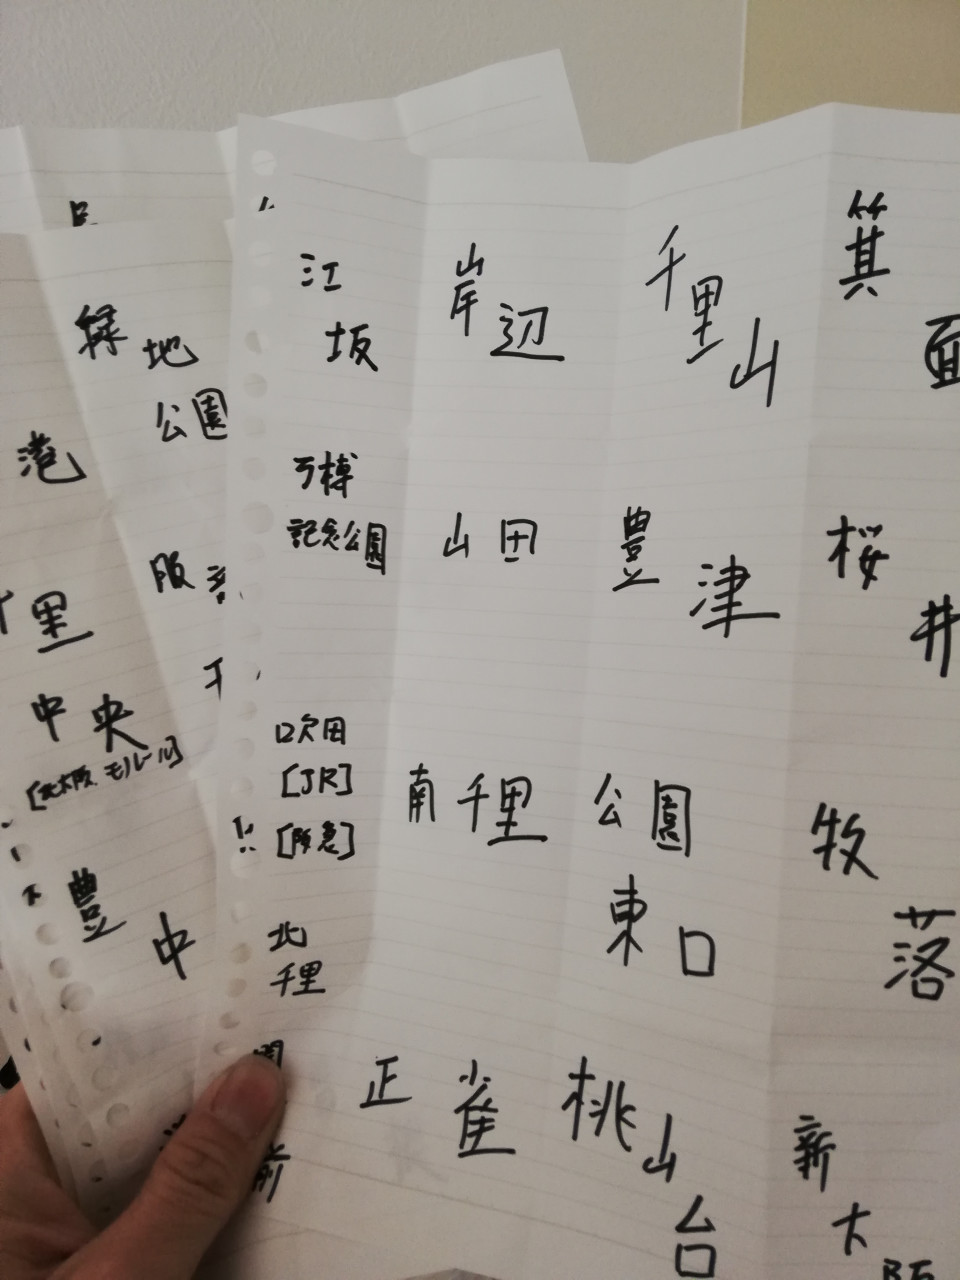 江坂
岸辺
千里山
箕面
万博
記念公園
山田
豊津
桜井
吹田
[JR]
[阪急]
南千里
公園
東口
牧落
北
千里
正雀
桃山台
新大阪
前
緑地
公園
港
阪
里
中央
[北大阪、モノレール]
豊中